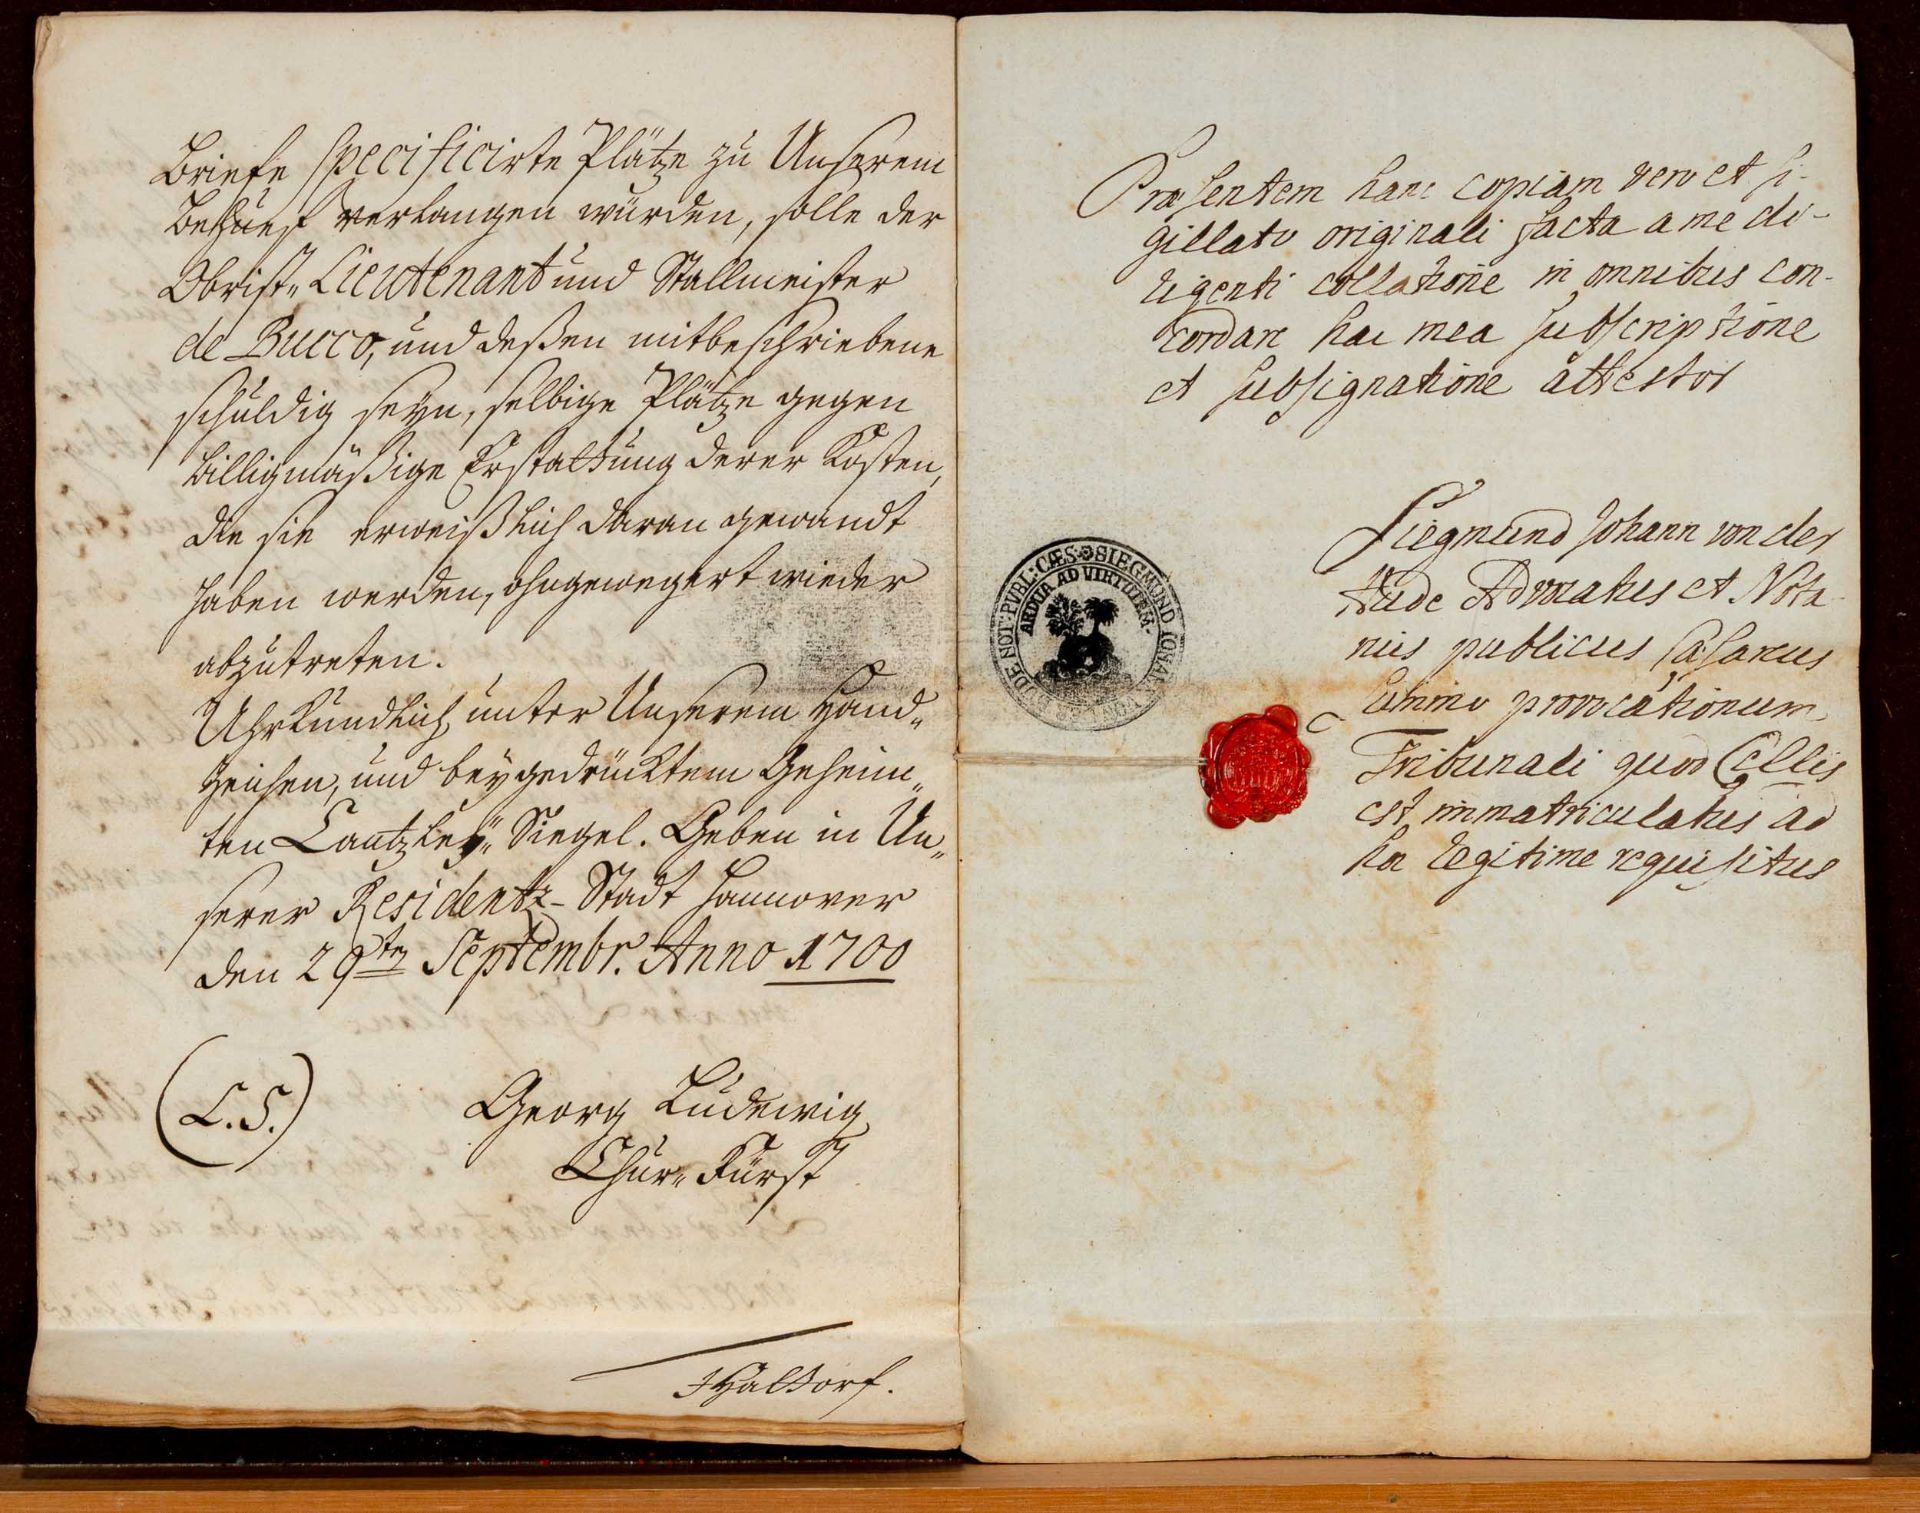 Briefe specificirte Plätze zu Unserem
Behuef verlangen würden, solle der
Obrist„ Lieutenant und Stallmeister
de Bucco, und deßen mitbeschriebene
schuldig seyn, selbige Plätze gegen
billigmäßige Erstattung derer Kosten,
die sie erweißlich daran gewandt
haben werden, ohngewegert wieder
abzutreten.
Uhrkundlich unter Unserem Hand„
zeichen, und beygedrücktem Geheim„
ten Cantzley„ Siegel. Geben in Un„
serer Residentz-Stadt Hannover
den 29ten Septembr. Anno 1700
(L.S.)
Georg Ludewig
Chur„ Fürst
Præsentem hanc copiam vero et si-
gillato originali facta a me di-
ligenti collatione in omnibus con-
cordare hac mea subscriptione
et subsignatione attestor
Siegmund Johann von der
Hude Advocatus et Nota
rius publicus Cæsareus
summo provocationum
Tribunali quod Cellis
est immatriculatus ad
hoc legitime requisitus
NOT: PVBL: CÆS: SIEGMUND JOHAN
ARDUA AD VIRTUTEM